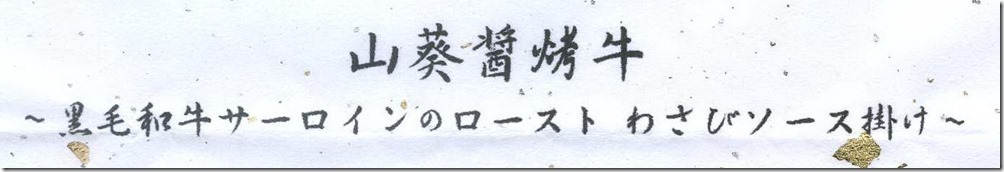 山葵醤烤牛
~黒毛和牛サーロインのロースト わさびソース掛け~